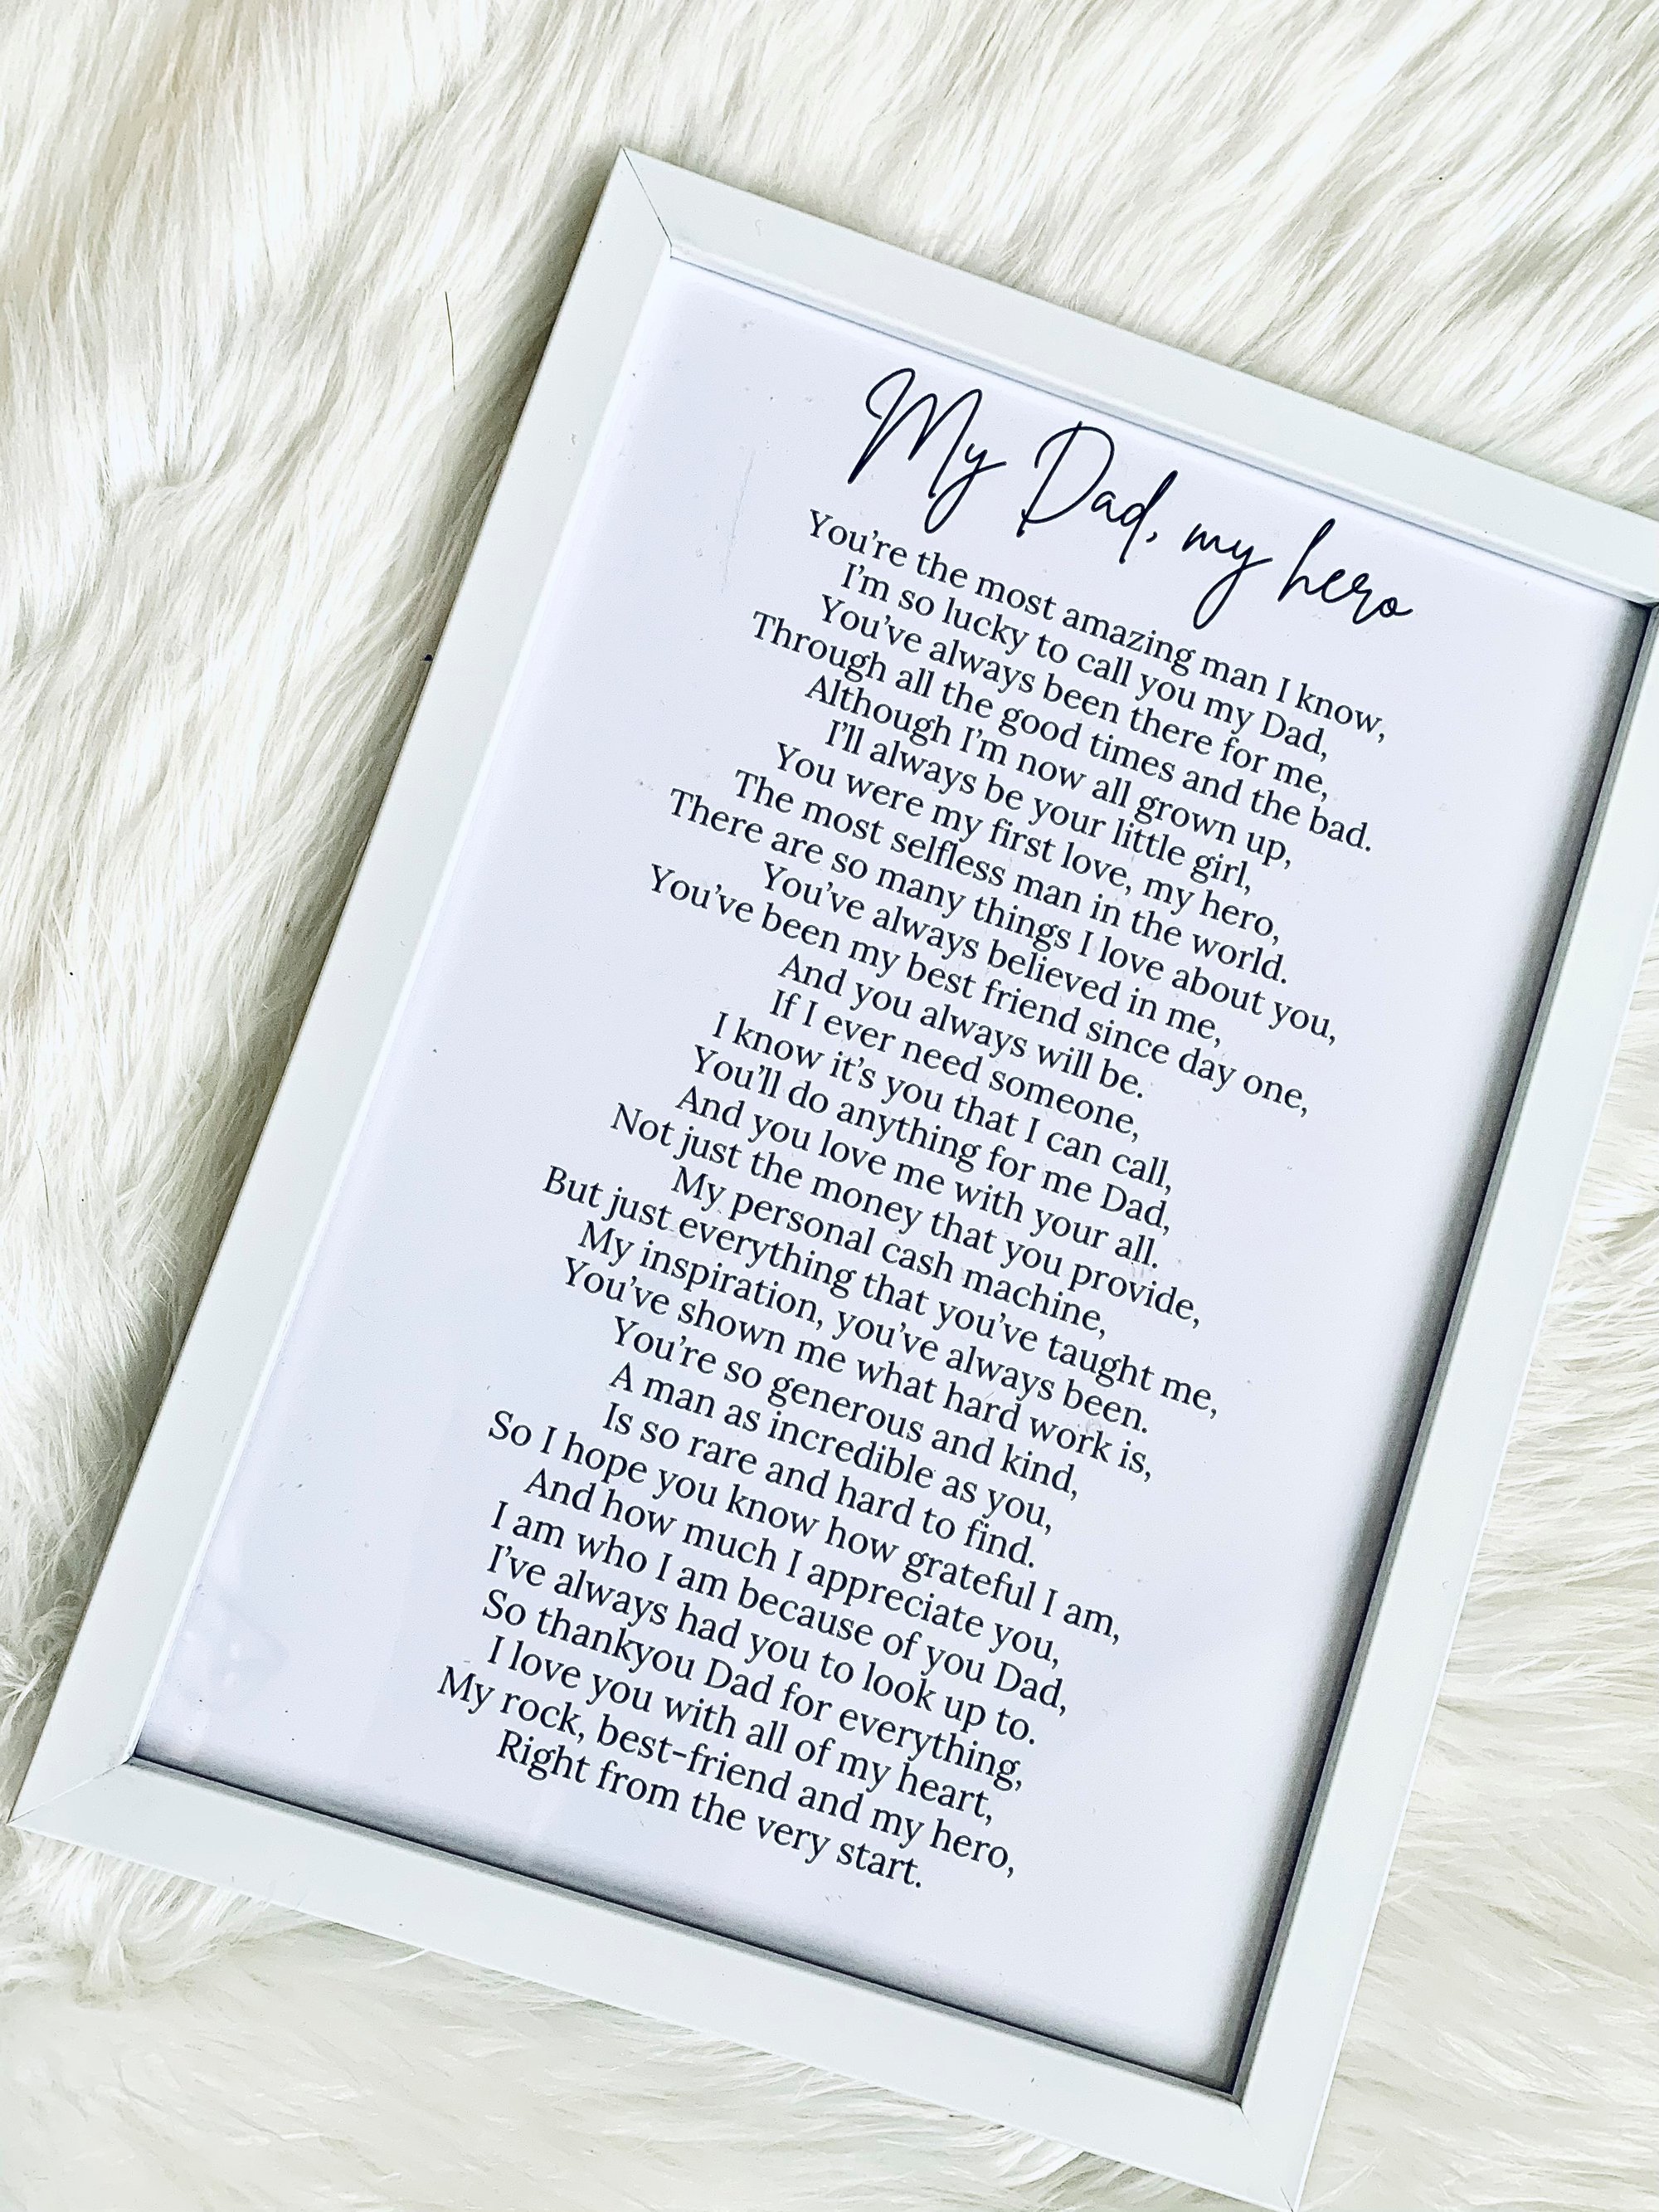 My Dad, my hero
You're the most amazing man I know,
I'm so lucky to call you my Dad,
You've always been there for me,
Through all the good times and the bad.
Although I'm now all grown up,
I'll always be your little girl,
You were my first love, my hero,
The most selfless man in the world.
There are so many things I love about you,
You've always believed in me,
You've been my best friend since day one,
And you always will be.
If I ever need someone,
I know it's you that I can call,
You'll do anything for me Dad,
And you love me with your all.
Not just the money that you provide,
My personal cash machine,
But just everything that you've taught me,
My inspiration, you've always been.
You've shown me what hard work is,
You're so generous and kind,
A man as incredible as you,
Is so rare and hard to find.
So I hope you know how grateful I am,
And how much I appreciate you,
I am who I am because of you Dad,
I've always had you to look up to.
So thankyou Dad for everything,
I love you with all of my heart,
My rock, best-friend and my hero,
Right from the very start.